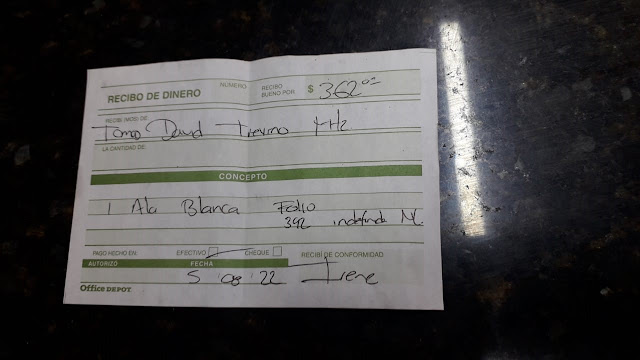 RECIBO DE DINERO NÚMERO RECIBO BUENO POR $ 362.00
RECIBÍ (MOS) DE
Tomas David Trevino Hz.
LA CANTIDAD DE
CONCEPTO
1 Ala Blanca Folio
392 indefinida NL.
PAGO HECHO EN: EFECTIVO CHEQUE RECIBÍ DE CONFORMIDAD
AUTORIZO FECHA
5 08 22 Irene
Office DEPOT